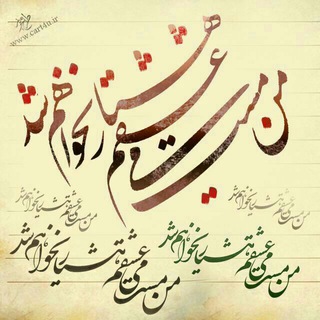 www.cart4u.ir
من مست می عشقم هشیار نخواهم شد
من مست می عشقم هشیار نخواهم شد
من مست می عشقم هشیار نخواهم شد
من مست می عشقم هشیار نخواهم شد
من مست می عشقم هشیار نخواهم شد